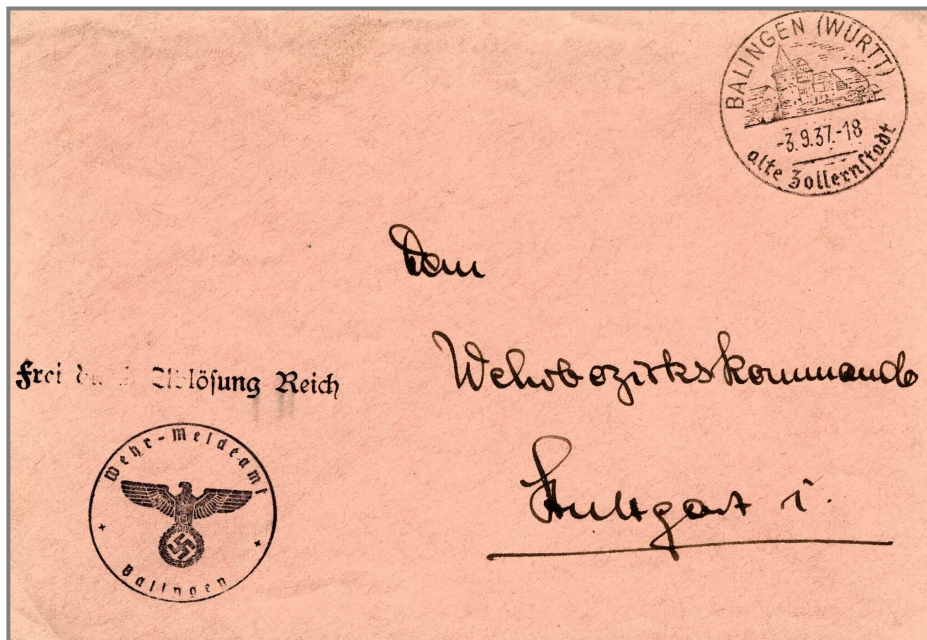 BALINGEN (WÜRTT)
-3.9.37.-18
alte Zollernstadt
Dem
Wehrbezirkskommando
Frei durch Ablösung Reich
Stuttgart i.
Wehr-Meldeamt
Balingen